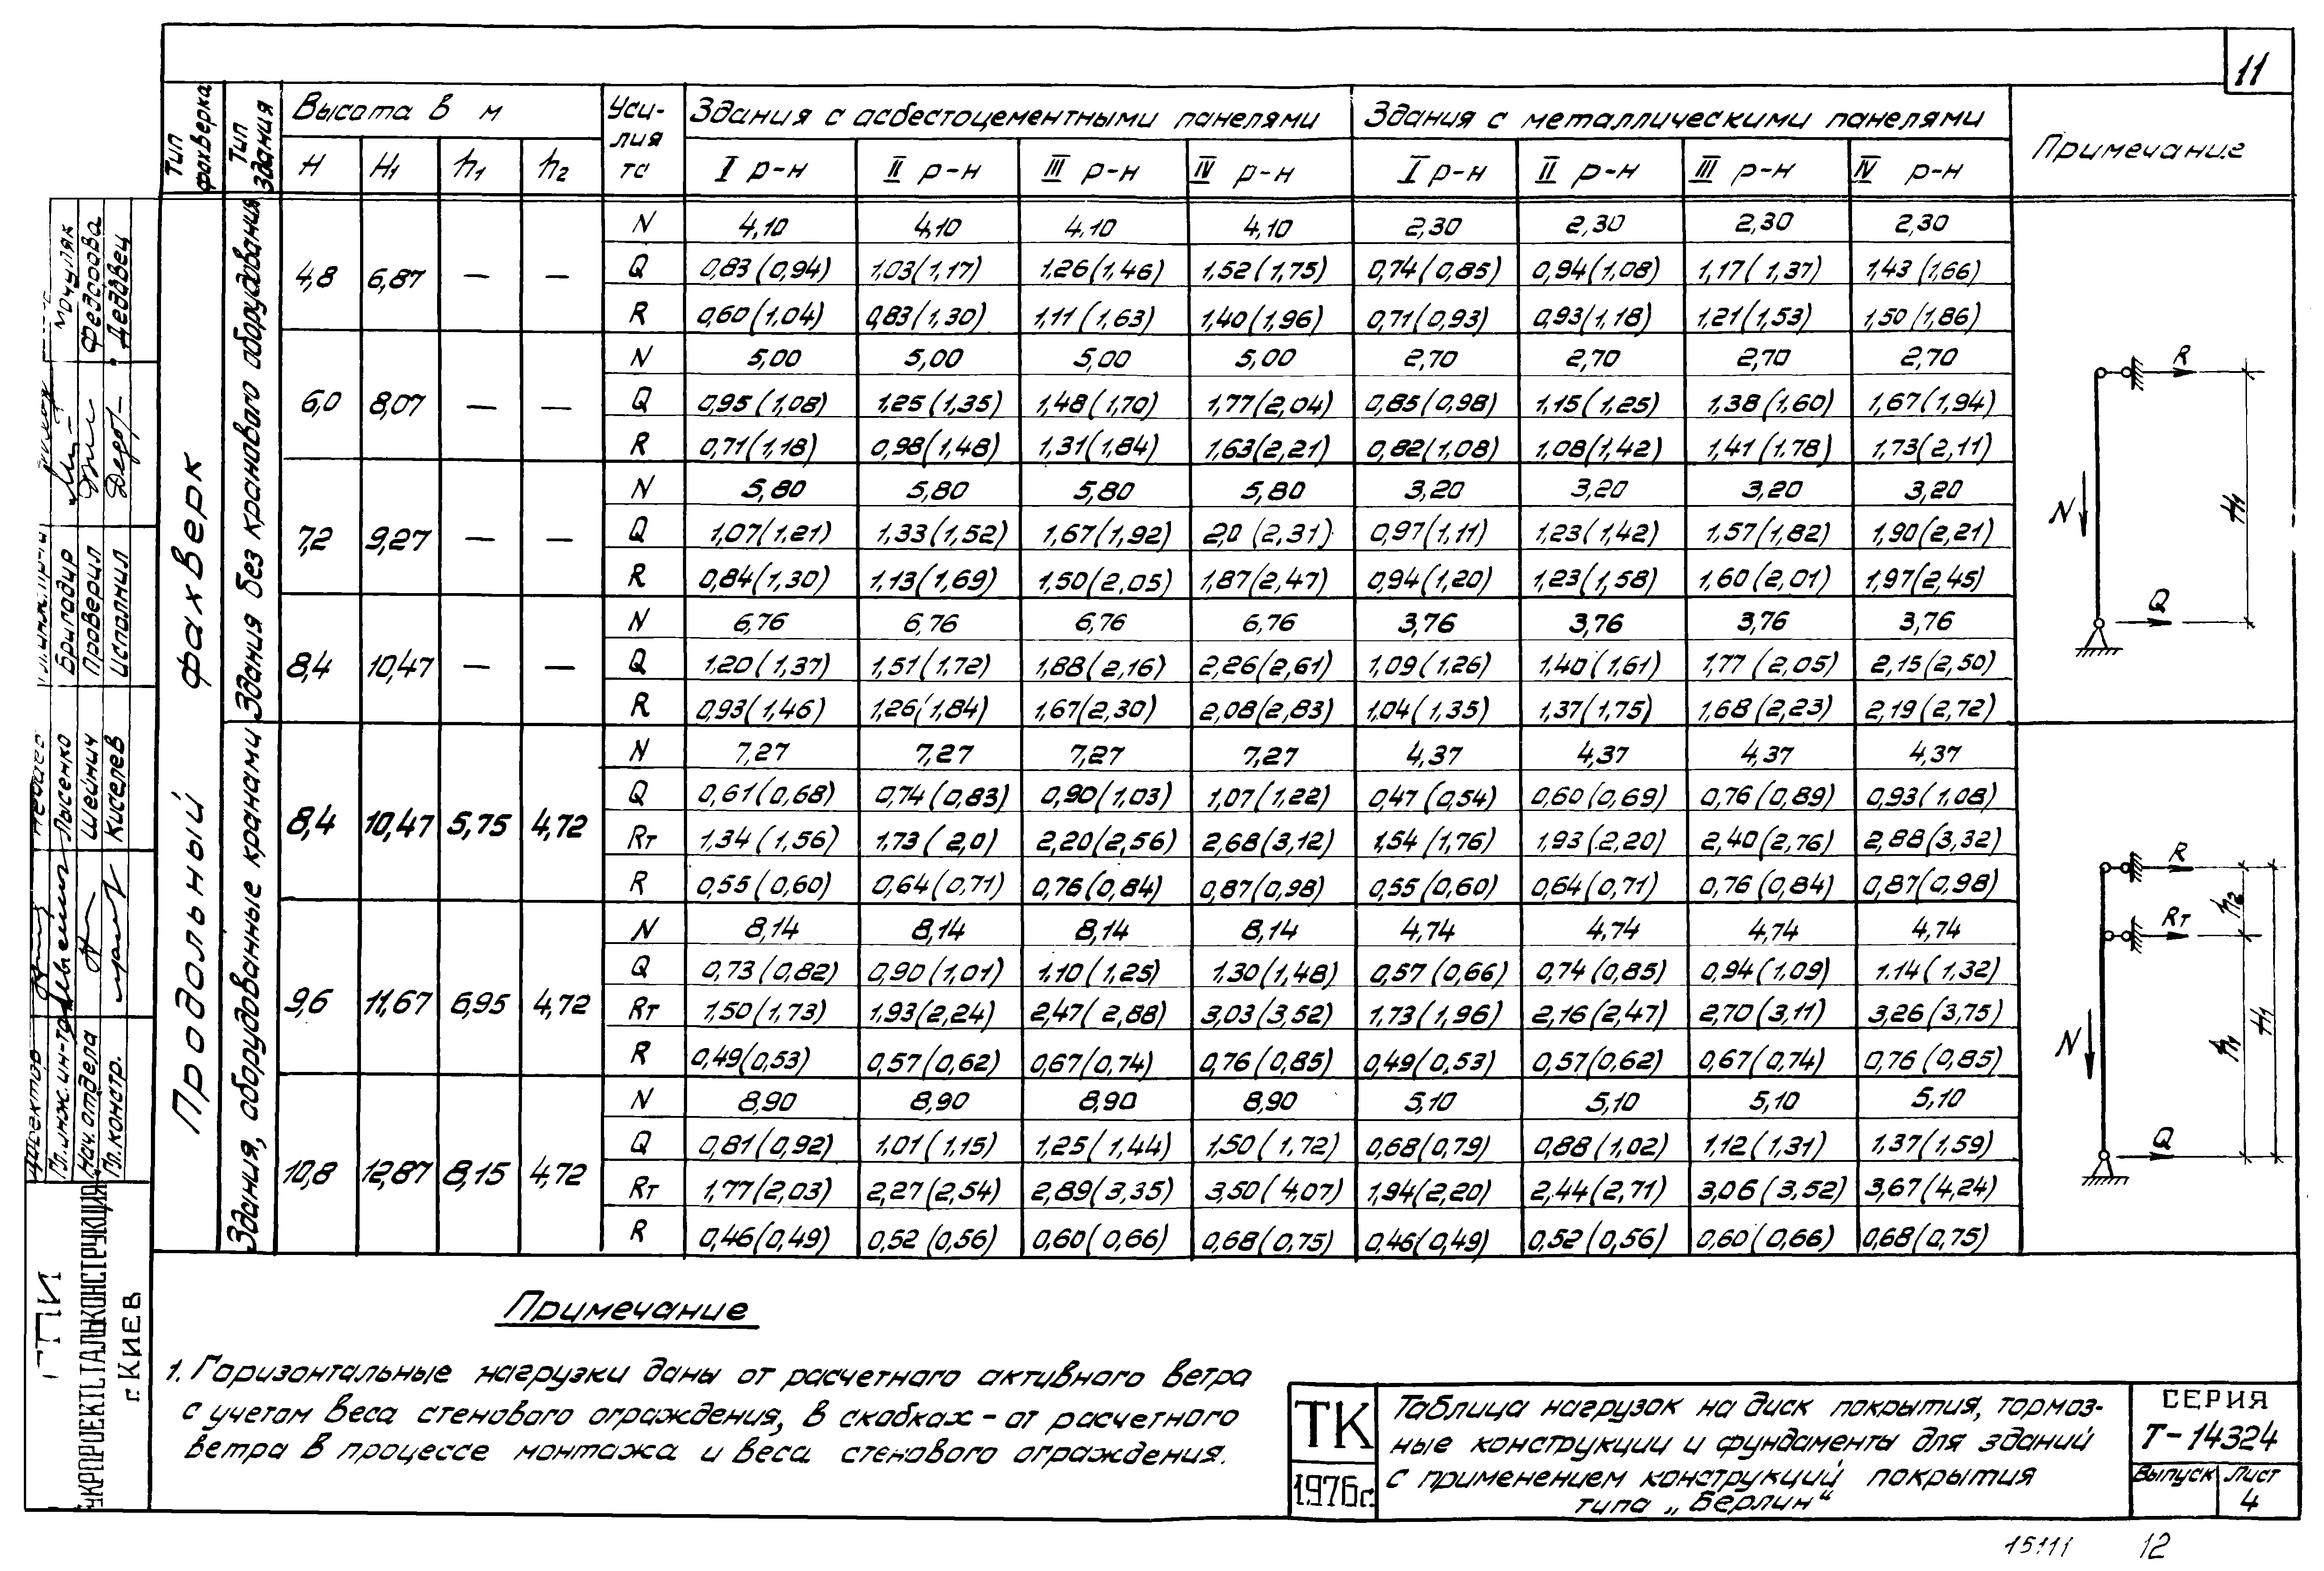 11
Тип фахверка
Тип здания
Высота в м
Уси-
лия
та
Здания с асбестоцементными панелями
Здания с металлическими панелями
Примечание
H H₁ h₁ h₂
I р-н II р-н III р-н IV р-н I р-н II р-н III р-н IV р-н
Продольный фахверк
Здания без кранового оборудования
4,8 6,87 — —
N 4,10 4,10 4,10 4,10 2,30 2,30 2,30 2,30
Q 0,83(0,94) 1,03(1,17) 1,26(1,46) 1,52(1,75) 0,74(0,85) 0,94(1,08) 1,17(1,37) 1,43(1,66)
R 0,60(1,04) 0,83(1,30) 1,11(1,63) 1,40(1,96) 0,71(0,93) 0,93(1,18) 1,21(1,53) 1,50(1,86)
6,0 8,07 — —
N 5,00 5,00 5,00 5,00 2,70 2,70 2,70 2,70
Q 0,95(1,08) 1,25(1,35) 1,48(1,70) 1,77(2,04) 0,85(0,98) 1,15(1,25) 1,38(1,60) 1,67(1,94)
R 0,71(1,18) 0,98(1,48) 1,31(1,84) 1,63(2,21) 0,82(1,08) 1,08(1,42) 1,41(1,78) 1,73(2,11)
7,2 9,27 — —
N 5,80 5,80 5,80 5,80 3,20 3,20 3,20 3,20
Q 1,07(1,21) 1,33(1,52) 1,67(1,92) 2,0(2,31) 0,97(1,11) 1,23(1,42) 1,57(1,82) 1,90(2,21)
R 0,84(1,30) 1,13(1,69) 1,50(2,05) 1,87(2,47) 0,94(1,20) 1,23(1,58) 1,60(2,01) 1,97(2,45)
8,4 10,47 — —
N 6,76 6,76 6,76 6,76 3,76 3,76 3,76 3,76
Q 1,20(1,37) 1,51(1,72) 1,88(2,16) 2,26(2,61) 1,09(1,26) 1,40(1,61) 1,77(2,05) 2,15(2,50)
R 0,93(1,46) 1,26(1,84) 1,67(2,30) 2,08(2,83) 1,04(1,35) 1,37(1,75) 1,68(2,23) 2,19(2,72)
Здания, оборудованные кранами
8,4 10,47 5,75 4,72
N 7,27 7,27 7,27 7,27 4,37 4,37 4,37 4,37
Q 0,61(0,68) 0,74(0,83) 0,90(1,03) 1,07(1,22) 0,47(0,54) 0,60(0,69) 0,76(0,89) 0,93(1,08)
Rт 1,34(1,56) 1,73(2,0) 2,20(2,56) 2,68(3,12) 1,54(1,76) 1,93(2,20) 2,40(2,76) 2,88(3,32)
R 0,55(0,60) 0,64(0,71) 0,76(0,84) 0,87(0,98) 0,55(0,60) 0,64(0,71) 0,76(0,84) 0,87(0,98)
9,6 11,67 6,95 4,72
N 8,14 8,14 8,14 8,14 4,74 4,74 4,74 4,74
Q 0,73(0,82) 0,90(1,01) 1,10(1,25) 1,30(1,48) 0,57(0,66) 0,74(0,85) 0,94(1,09) 1,14(1,32)
Rт 1,50(1,73) 1,93(2,24) 2,47(2,88) 3,03(3,52) 1,73(1,96) 2,16(2,47) 2,70(3,11) 3,26(3,75)
R 0,49(0,53) 0,57(0,62) 0,67(0,74) 0,76(0,85) 0,49(0,53) 0,57(0,62) 0,67(0,74) 0,76(0,85)
10,8 12,87 8,15 4,72
N 8,90 8,90 8,90 8,90 5,10 5,10 5,10 5,10
Q 0,81(0,92) 1,01(1,15) 1,25(1,44) 1,50(1,72) 0,68(0,79) 0,88(1,02) 1,12(1,31) 1,37(1,59)
Rт 1,77(2,03) 2,27(2,54) 2,89(3,35) 3,50(4,07) 1,94(2,20) 2,44(2,71) 3,06(3,52) 3,67(4,24)
R 0,46(0,49) 0,52(0,56) 0,60(0,66) 0,68(0,75) 0,46(0,49) 0,52(0,56) 0,60(0,66) 0,68(0,75)
R
N
H₁
Q
R
Rт
h₂
N
h₁
H₁
Q
Примечание
1. Горизонтальные нагрузки даны от расчетного активного ветра
с учетом веса стенового ограждения, в скобках – от расчетного
ветра в процессе монтажа и веса стенового ограждения.
ТК
1976г.
Таблица нагрузок на диск покрытия, тормоз-
ные конструкции и фундаменты для зданий
с применением конструкций покрытия
типа „Берлин“
СЕРИЯ
Т-14324
Выпуск
Лист
4
15111 12
Директор
Гл. инж. ин-та Лысенко
Нач. отдела Шейнич
Гл. констр. Киселев
Бригадир Мочуляк
Проверил Федорова
Исполнил Дедовец
ГПИ
УКРПРОЕКТСТАЛЬКОНСТРУКЦИЯ
г. КИЕВ